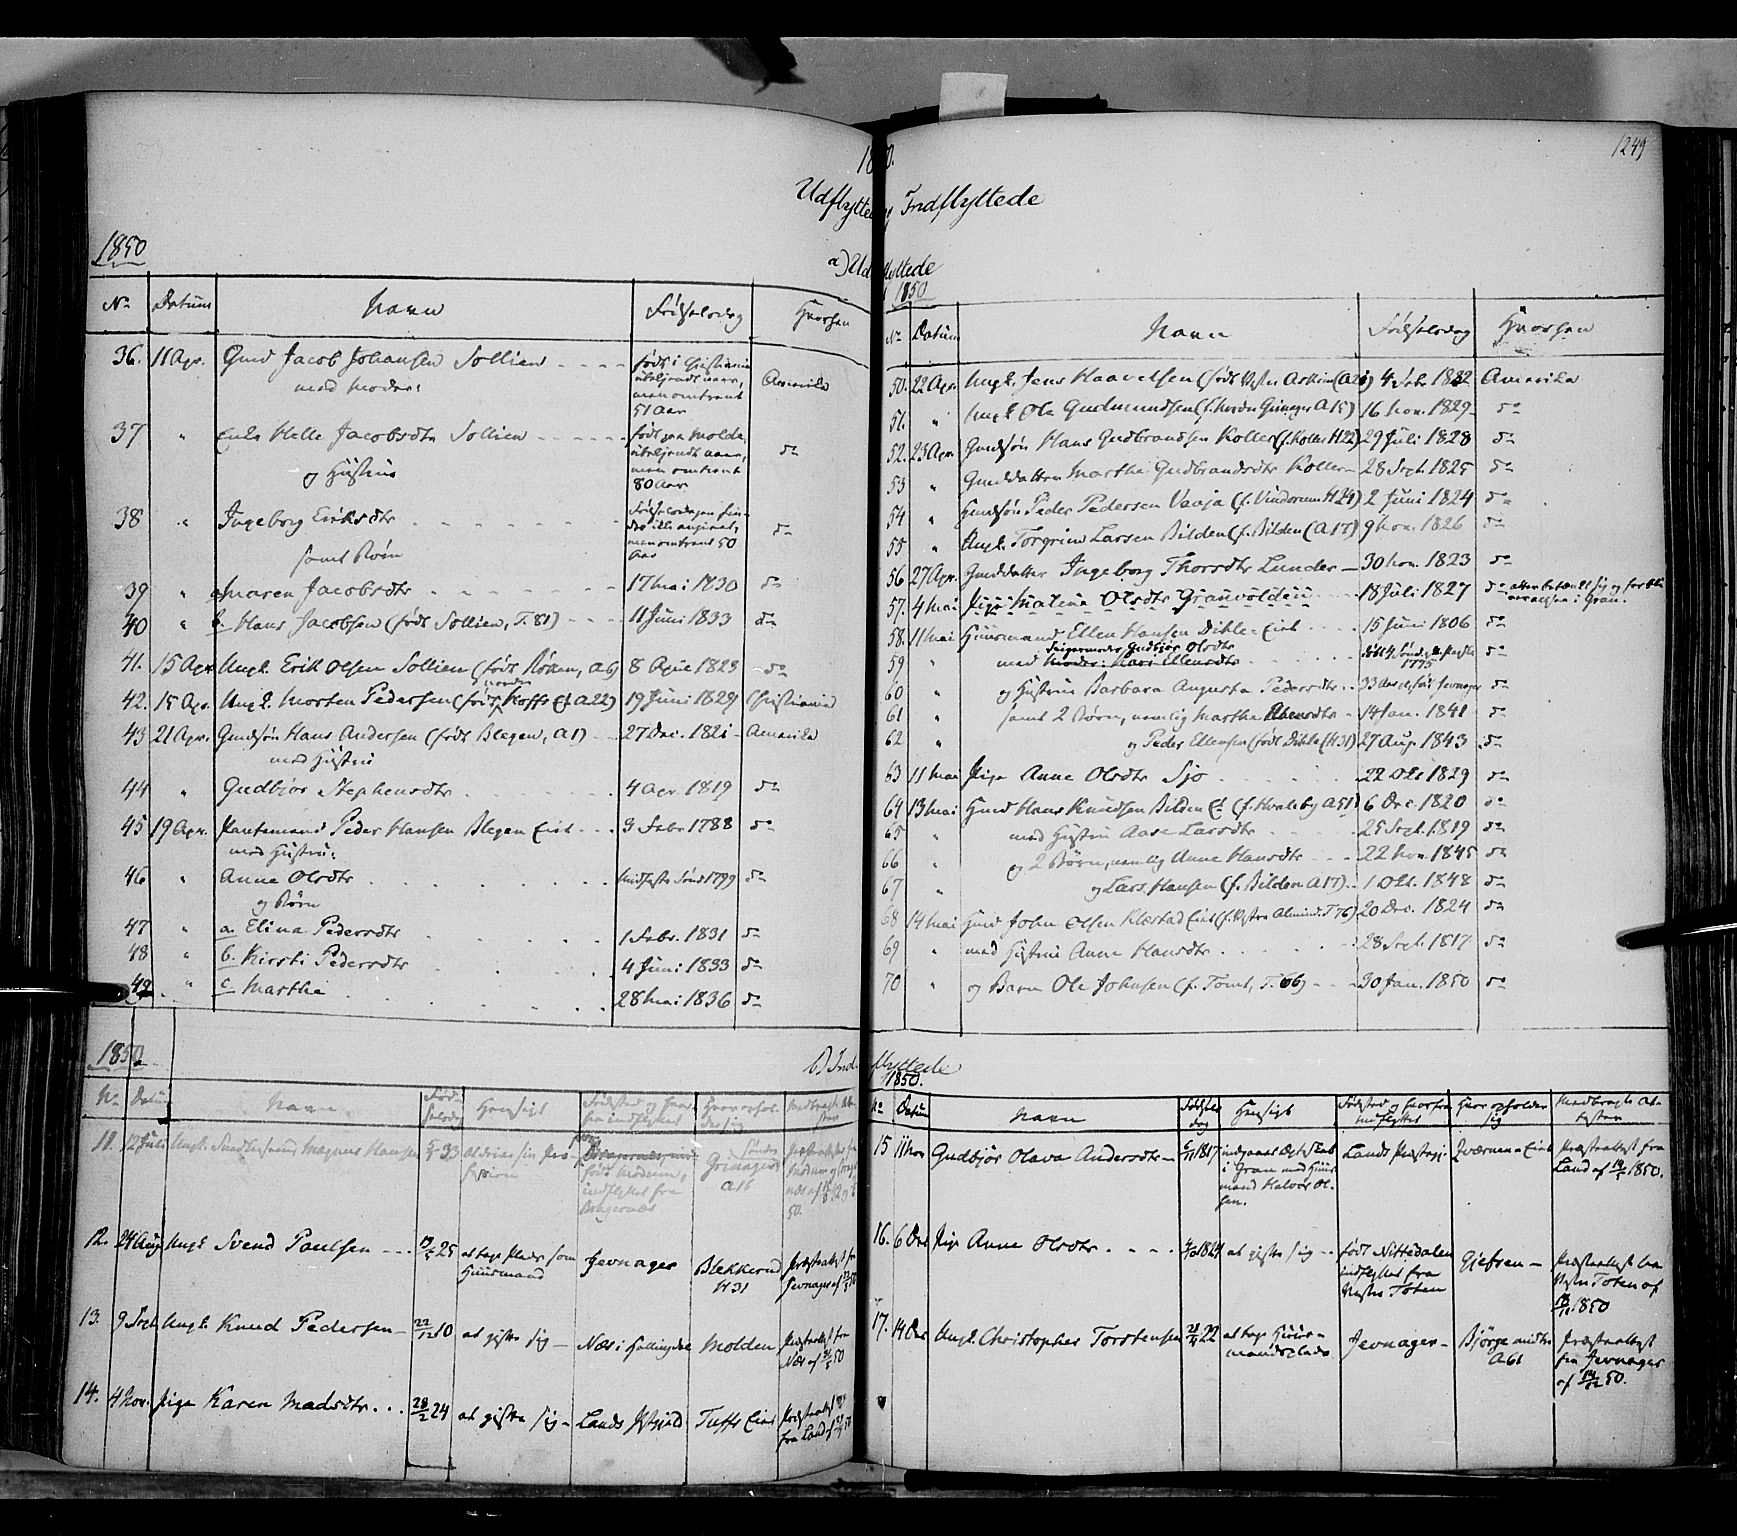 1249
1850.
Udflyttede og Indflyttede
1850
a) Udflyttede
No Datum Navn Fødselsdag Hvorhen
36. 11 Apr. Gmd Jacob Johansen Sollien født i Christiania
med Moder: men omtrent Amerika
51 Aar
37 " Enke Helle Jacobsdtr Sollien født paa Molde,
og Hustru men omtrent do
80 Aar
38 " Ingeborg Eriksdtr Fødselsdagen fin-
des ikke angivet, do
samt Børn men omtrent 50
Aar
39 " a. Maren Jacobsdtr 17 Mai 1830 do
40 " b. Hans Jacobsen (født Sollien, T.81) 11 Juni 1833 do
41. 15 Apr. Ungk. Erik Olsen Sollien (født Røken, A6) 8 April 1823 do
42. 15 Ap. Ungk. Morten Pedersen (født nordre Hoffs Ei A22) 19 Juni 1829 Christiania
43 21 Apr. Gmdsøn Hans Andersen (født Blegen, A1) 27 Dec. 1821 Amerika
med Hustru
44 " Gudbjør Stephensdtr 4 Apr. 1819 do
45 19 Apr. Pantemand Peder Hansen Blegen Eiet 3 Febr 1788 do
med Hustru:
46 " Anne Olsdtr Midfaste Sønd 1799 do
og Børn
47 " a. Elina Pedersdtr 1 Febr. 1831 do
48 " b. Kirsti Pedersdtr 4 Juni 1833 do
49 " c. Marthe 28 Mai 1836 do
1850
No Datum Navn Fødselsdag Hvorhen
50. 22 Apr. Ungk. Jens Haavelsen (født Vestre Askim (A26) 4 Febr 1832 Amerika
51. " Ungk Ole Gudmundsen (f. nordre Grinager A15) 16 Nov. 1829 do
52. 23 Apr Gmdsøn Hans Gudbrandsen Koller (f. Koller H22) 29 Juli 1828 do
53 " Gmddatter Marthe Gudbrandsdtr Koller 28 Sept. 1825 do
54 " Gmdsøn Peder Pedersen Vaaja (f. Vindorum H24) 2 Juni 1824 do
55 " Ungk. Torgrim Larsen Bilden (f. Bilden (A17) 9 Nov. 1826 do
56 27 Apr. Gmddatter Ingeborg Thorsdtr Lunder 30 Nov. 1823 do
57. 4 Mai Pige Malene Olsdtr Granvolden 18 Juli 1827 do atter betænkt sig og forblir
i Gran.
58. 11 Mai Huusmand Ellen Hansen Dihle-Eiet 15 Juni 1806 do
59 " med Svigermoder Gudbjør Olsdtr 1775 do
Moder: Kari Ellensdtr
60 " og Hustru Barbara Augusta Pedersdtr 33 Aar gl, født Jevnager do
61 " samt 2 Børn, nemlig Marthe Ellensdtr 14 Jan. 1841 do
62 " og Peder Ellensen (født Dihle (H31) 27 Aug. 1843 do
63 11 Mai Pige Anne Olsdtr Sjo 22 Okt 1829 do
64 13 Mai Gmd Hans Knudsen Bilden Ei (f. Hvaleby A51) 6 Dec. 1820 do
65 " med Hustru Aase Larsdtr 25 Sept. 1819 do
66 " og 2 Børn, nemlig Anne Hansdtr 22 Nov. 1845 do
67 " og Lars Hansen (f. Bilden A17) 1 Okt. 1848 do
68 14 Mai Gmd John Olsen Klæstad Eiet (f. Vestre Almind. T76) 20 Dec. 1824 do
69 " med Hustru Anne Hansdtr 28 Sept. 1817 do
70 " og Barn Ole Johnsen (f. Tomt, T.66) 30 Jan. 1850 do
1850
b) Indflyttede
No Datum Navn Fødselsdag Hensigt Fødested og hvorfra indflyttet Hvor opholder sig Medbragt Attester
11. 12 Juli Ungk. Magnus Hansen 33 at drive sin Profession født Modum,
indflyttet fra
Bragernæs søndre Grinager A16
12. 24 Aug Ungk Svend Paulsen 25 at tage Plads som
Huusmand Jevnager Blekkerud H31 Præsteattest fra
Jevnager
13. 9 Sept Ungk. Knud Pedersen 22/12 10 at gifte sig Næs i Hallingdal Molden Præsteattest fra
Næs
14. 4 Nov. Pige Karen Madsdtr 28/2 24 at gifte sig Lands Pstgjeld Tuffs Eiet Præsteattest
fra Land
1850.
No Datum Navn Fødselsdag Hensigt Fødested og hvorfra indflyttet Hvor opholder sig Medbragte Attester
15 11 Nov Gudbjør Olava Andersdtr 1817 indgaaet Ægteskab
i Gran med Huus-
mand Halvor Ol-
sen. Lands Præstegj. Qværnen-Eiet Præsteattest fra
Land af 1850.
16. 6 Dec Pige Anne Olsdtr 1824 at gifte sig født Nittedalen
indflyttet fra
Vestre Toten Gjefsen Præsteattest fra
Vestre Toten af
1850
17. 14 Dec Ungk. Christopher Torstensen 22 at tage Huus-
mandsplads Jevnager Bjørge midtre
A61 Præsteattest
fra Jevnager
af 50.